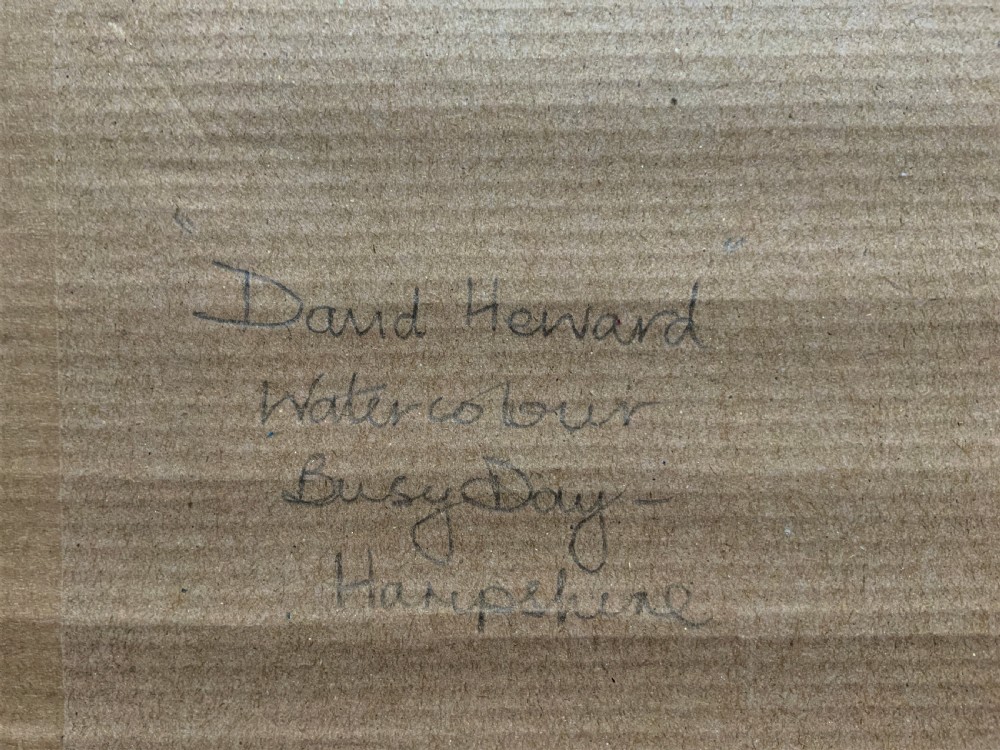 "David Heward"
Watercolour
Busy Day -
Hampshire